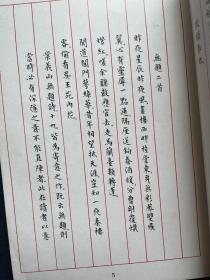 無題二首
昨夜星辰昨夜風畫樓西畔桂堂東身無彩鳳雙飛
翼心有靈犀一點通隔座送鉤春酒暖分曹射覆蠟
燈紅嗟余聽鼓應官去走馬蘭臺類轉蓬
聞道閶門萼綠華昔年相望抵天涯豈知一夜秦樓
客偷看吳王苑內花
案義山無題詩十九皆爲寄意之作既云無題則
當時必有深隱之意不能直陳者此在讀者以意
5